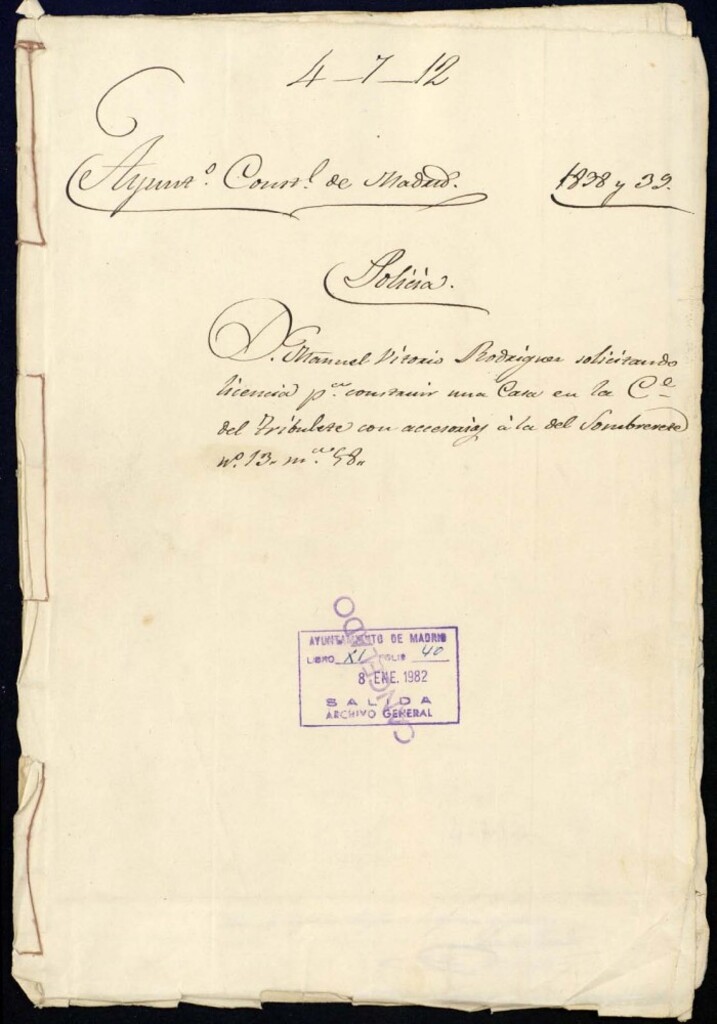 4-7-12
Ayunt.º Const.l de Madrid. 1838 y 39.
Policia.
D. Manuel Vitorio Rodriguez solicitando
licencia p.ra construir una Casa en la C.e
del Tribulete con accesorias à la del Sombrerete
nº. 13. m.na 58.
AYUNTAMIENTO DE MADRID
LIBRO XI FOLIO 40
8 ENE. 1982
SALIDA
ARCHIVO GENERAL
CANCELADO